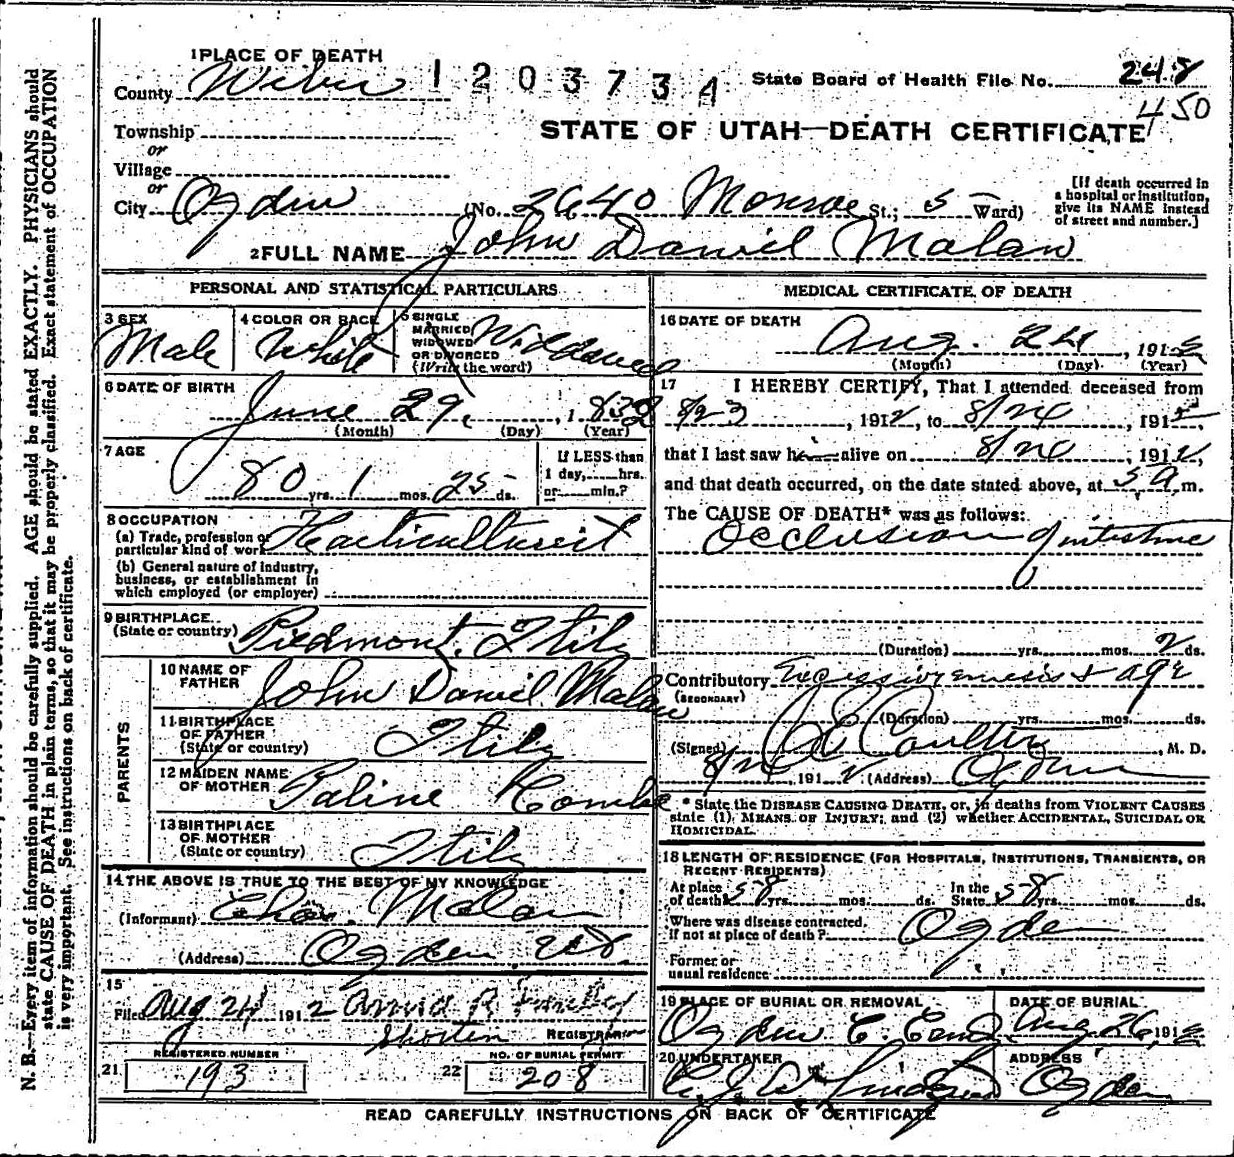 1 PLACE OF DEATH
1203734
State Board of Health File No. 248
450
County Weber
STATE OF UTAH—DEATH CERTIFICATE
Township
or
Village
or
City Ogden (No. 2640 Monroe St.; 5 Ward)
[If death occurred in a hospital or institution, give its NAME instead of street and number.]
2 FULL NAME John Daniel Malan
PERSONAL AND STATISTICAL PARTICULARS
3 SEX Male
4 COLOR OR RACE White
5 SINGLE MARRIED WIDOWED OR DIVORCED (Write the word) Widdowed
6 DATE OF BIRTH
June 29, 1832
(Month) (Day) (Year)
7 AGE
80 yrs. 1 mos. 25 ds.
If LESS than 1 day, hrs. or min.?
8 OCCUPATION
(a) Trade, profession or particular kind of work Horticulturist
(b) General nature of industry, business, or establishment in which employed (or employer)
9 BIRTHPLACE
(State or country) Piedmont, Itily
PARENTS
10 NAME OF FATHER John Daniel Malan
11 BIRTHPLACE OF FATHER (State or country) Itily
12 MAIDEN NAME OF MOTHER Paline Combe
13 BIRTHPLACE OF MOTHER (State or country) Itily
14 THE ABOVE IS TRUE TO THE BEST OF MY KNOWLEDGE
(Informant) Chas. Malan
(Address) Ogden, Ut.
15
Filed Aug 24 1912 Annie R
REGISTRAR
21 REGISTERED NUMBER 193
22 NO. OF BURIAL PERMIT 208
MEDICAL CERTIFICATE OF DEATH
16 DATE OF DEATH
Aug. 24, 1912
(Month) (Day) (Year)
17 I HEREBY CERTIFY, That I attended deceased from
8/23, 1912, to 8/24, 1912
that I last saw h alive on 8/24, 1912,
and that death occurred, on the date stated above, at 5 A m.
The CAUSE OF DEATH* was as follows:
Occlusion of intestine
(Duration) yrs. mos. 2 ds.
Contributory Excessive emesis & age
(SECONDARY)
(Duration) yrs. mos. ds.
(Signed) Coulter, M. D.
8/24, 1912 (Address) Ogden
* State the DISEASE CAUSING DEATH, or, in deaths from VIOLENT CAUSES
state (1) MEANS OF INJURY; and (2) whether ACCIDENTAL, SUICIDAL OR
HOMICIDAL.
18 LENGTH OF RESIDENCE (FOR HOSPITALS, INSTITUTIONS, TRANSIENTS, OR
RECENT RESIDENTS)
At place of death 58 yrs. mos. ds. In the State 58 yrs. mos. ds.
Where was disease contracted, If not at place of death? Ogden
Former or usual residence
19 PLACE OF BURIAL OR REMOVAL Ogden C. Cem
DATE OF BURIAL Aug. 26, 1912
20 UNDERTAKER
ADDRESS Ogden
READ CAREFULLY INSTRUCTIONS ON BACK OF CERTIFICATE
N. B.—Every item of information should be carefully supplied. AGE should be stated EXACTLY. PHYSICIANS should
state CAUSE OF DEATH in plain terms, so that it may be properly classified. Exact statement of OCCUPATION
is very important. See instructions on back of certificate.